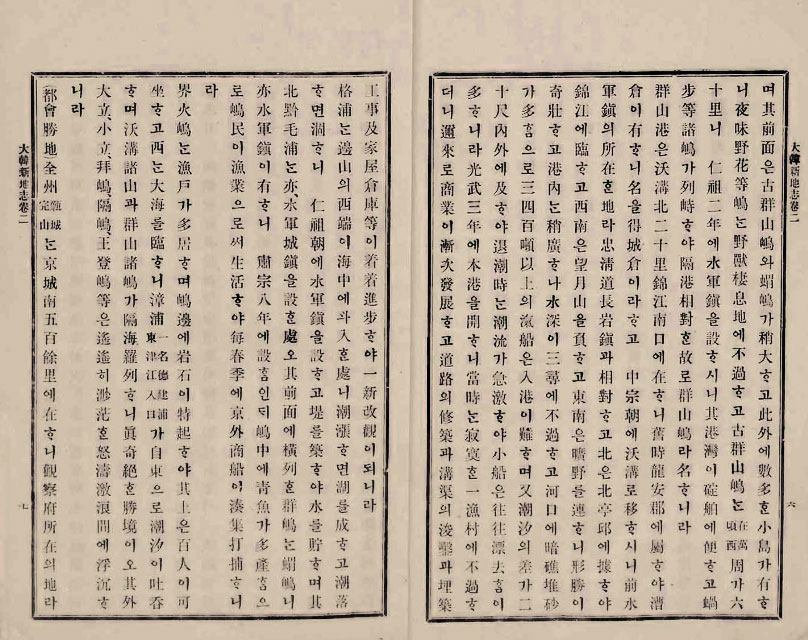 大韓新地志卷二 六
며其前面은古群山嶋와蝟嶋가稍大ᄒᆞ고此外에數多ᄒᆞᆫ小島가有ᄒᆞ
니夜味野花等嶋ᄂᆞᆫ野獸棲息地에不過ᄒᆞ고古群山嶋ᄂᆞᆫ在萬頃西周가六
十里니 仁祖二年에水軍鎭을設ᄒᆞ시니其港灣이碇舶에便ᄒᆞ고蝎
步等諸嶋가列峙ᄒᆞ야隔港相對ᄒᆞᆫ故로群山嶋라名ᄒᆞ니라
群山港은沃溝北二十里錦江南口에在ᄒᆞ니舊時龍安郡에屬ᄒᆞ야漕
倉이有ᄒᆞ니名을得城倉이라ᄒᆞ고 中宗朝에沃溝로移ᄒᆞ시니前水
軍鎭의所在ᄒᆞᆫ地라忠淸道長岩鎭과相對ᄒᆞ고北은北亭邱에據ᄒᆞ야
錦江에臨ᄒᆞ고西南은望月山을負ᄒᆞ고東南은曠野를連ᄒᆞ니形勝이
奇壯ᄒᆞ고港內ᄂᆞᆫ稍廣ᄒᆞ나水深이三尋에不過ᄒᆞ고河口에暗礁堆砂
가多ᄒᆞᆷ으로三四百噸以上의滊船은入港이難ᄒᆞ며又潮汐의差가二
十尺內外에及ᄒᆞ야退潮時ᄂᆞᆫ潮流가急激ᄒᆞ야小船은往往漂去ᄒᆞᆷ이
多ᄒᆞ니라光武三年에本港을開ᄒᆞ니當時ᄂᆞᆫ寂寞ᄒᆞᆫ一漁村에不過ᄒᆞ
더니邇來로商業이漸次發展ᄒᆞ고道路의修築과溝渠의浚鑿과埋築
工事及家屋倉庫等이着着進步ᄒᆞ야一新改觀이되니라
格浦ᄂᆞᆫ邊山의西端이海中에와入ᄒᆞᆫ處니潮漲ᄒᆞ면湖를成ᄒᆞ고潮落
ᄒᆞ면涸ᄒᆞ니 仁祖朝에水軍鎭을設ᄒᆞ고堤를築ᄒᆞ야水를貯ᄒᆞ며其
北黔毛浦ᄂᆞᆫ亦水軍城鎭을設ᄒᆞᆫ處오其前面에橫列ᄒᆞᆫ群嶋ᄂᆞᆫ蝟嶋니
亦水軍鎭이有ᄒᆞ니 肅宗八年에設ᄒᆞᆷ인ᄃᆡ嶋中에靑魚가多產ᄒᆞᆷ으
로嶋民이漁業으로써生活ᄒᆞ야每春季에京外商船이湊集打捕ᄒᆞ니
라
界火嶋ᄂᆞᆫ漁戶가多居ᄒᆞ며嶋邊에岩石이特起ᄒᆞ야其上은百人이可
坐ᄒᆞ고西ᄂᆞᆫ大海를臨ᄒᆞ니漳浦一名德建浦東津江入口가自東으로潮汐이吐呑
ᄒᆞ며沃溝諸山과群山諸嶋가隔海羅列ᄒᆞ니眞奇絶ᄒᆞᆫ勝境이오其外
大立、小立、拜嶋、隔嶋、王登嶋等은遙遙히渺茫ᄒᆞᆫ怒濤激浪間에浮沉ᄒᆞ
니라
都會勝地 全州甄城完山ᄂᆞᆫ京城南五百餘里에在ᄒᆞ니觀察府所在의地라
大韓新地志卷二 七